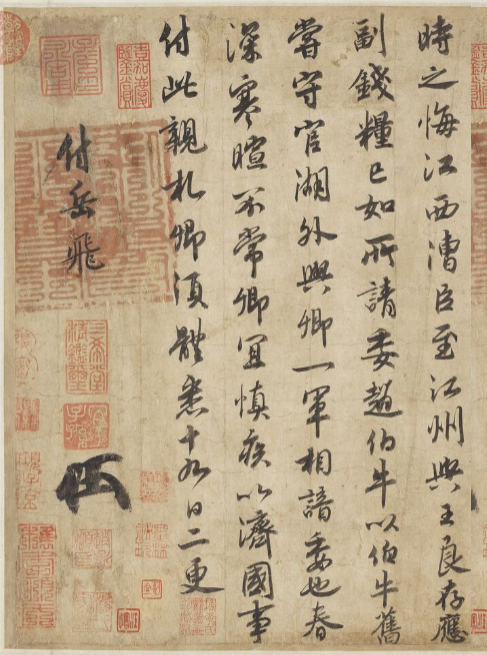 時之悔江西漕臣至江州與王良存應
副錢糧已如所請委趙伯牛以伯牛舊
嘗守官湖外與卿一軍相諳委也春
深寒暄不常卿宜慎疾以濟國事
付此親札卿須體悉十九日二更
付岳飛
三希堂精鑑璽
宜子孫